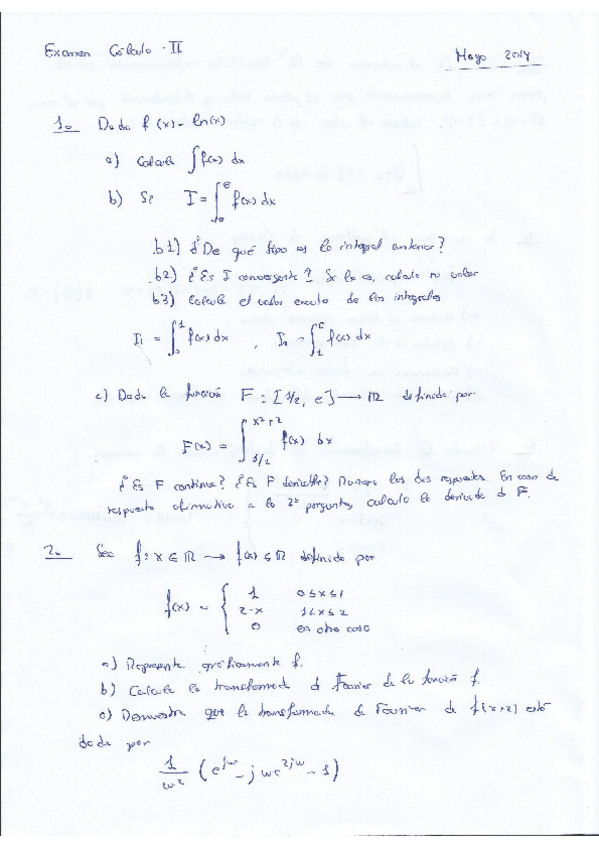 Examen Cálculo - II
Mayo 2014
1.- Dada f(x) = ln(x)
a) Calcula ∫f(x) dx
b) Se I = ∫₀ᵉ f(x) dx
b1) ¿De qué tipo es la integral anterior?
b2) ¿Es I convergente? Si lo es, calcula su valor
b3) Calcule el valor exacto de las integrales
I₁ = ∫₀¹ f(x) dx , I₂ = ∫₁ᵉ f(x) dx
c) Dada la función F: [1/2, e] → ℝ definida por
F(x) = ∫_{1/2}^{x²+2} f(x) dx
¿Es F continua? ¿Es F derivable? las dos respuestas. En caso de
respuesta afirmativa a la 2ª pregunta, calcula la derivada de F.
2.- Sea f: x ∈ ℝ → f(x) ∈ ℝ definida por
f(x) = { 1 0 ≤ x ≤ 1
2-x 1 < x ≤ 2
0 en otro caso
a) Represente gráficamente f.
b) Calcula la transformada de Fourier de la función f.
c) Demuestra que la transformada de Fourier de f(x+2) está
dada por
1/ω² (e^{jω} - jωe^{2jω} - 1)